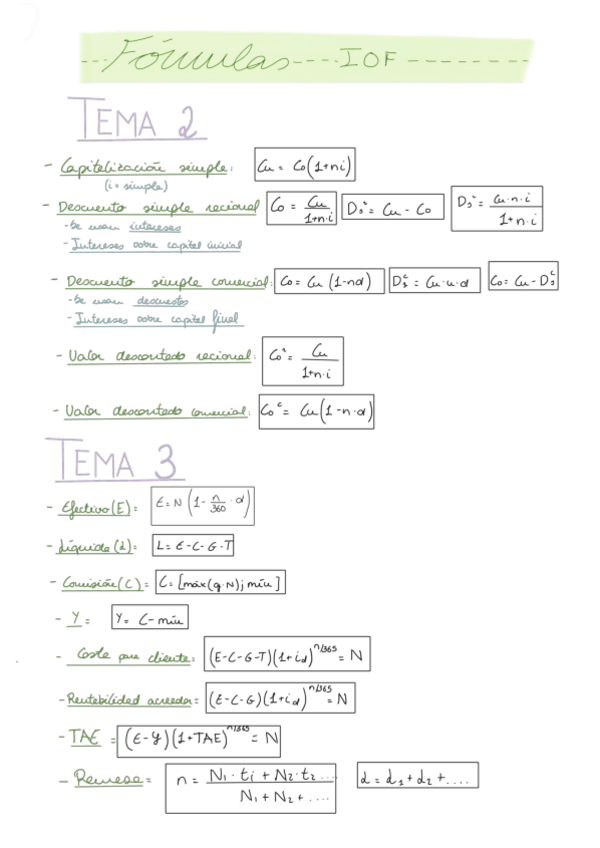 Fórmulas IOF
TEMA 2
- Capitalización simple: Cn = Co(1+ni)
(i = simple)
- Descuento simple racional Co = Cn / 1+n·i Ds^r = Cn - Co Ds^r = Cn·n·i / 1+n·i
- Se usan intereses
- Intereses sobre capital inicial
- Descuento simple comercial: Co = Cn (1-nd) Ds^c = Cn·n·d Co = Cn - Ds^c
- Se usan descuentos
- Intereses sobre capital final
- Valor descontado racional: Co^r = Cn / 1+n·i
- Valor descontado comercial: Co^c = Cn(1-n·d)
TEMA 3
- Efectivo (E) = E = N (1 - n/360 · d)
- Líquido (L) = L = E-C-G-T
- Comisión (C) = C = [máx(g·N); mín]
- Y = Y = C - mín
- Coste para cliente: (E-C-G-T)(1+id)^n/365 = N
- Rentabilidad acreedor = (E-C-G)(1+id)^n/365 = N
- TAE = (E-Y)(1+TAE)^n/365 = N
- Remesa = n = N1·t1 + N2·t2 ... / N1 + N2 + .... d = d1 + d2 + ....